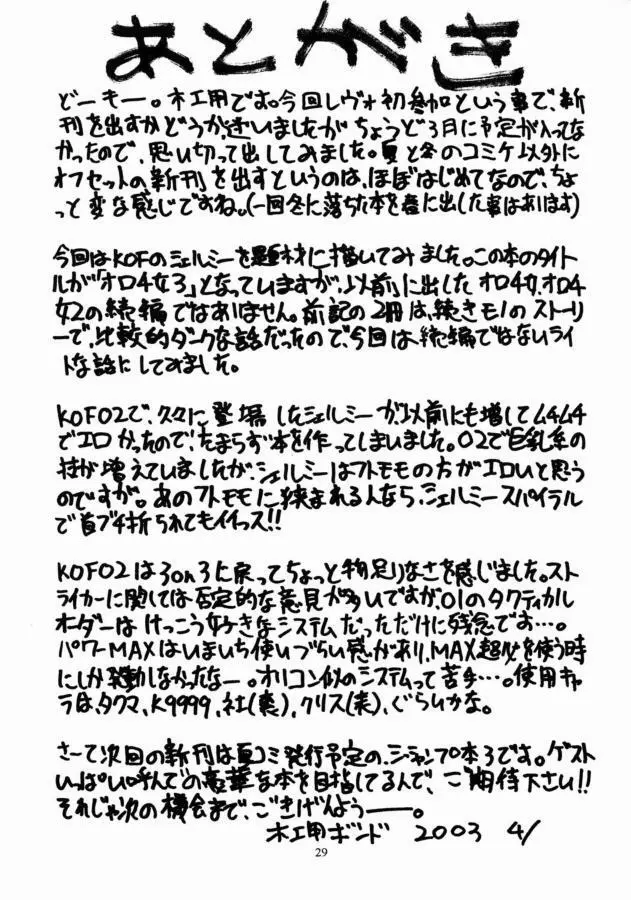 あとがき
どーもー。木工用です。今回レヴォ初参加という事で、新
刊を出すかどうか迷いましたがちょうど3月に予定が入ってな
かったので、思い切って出してみました。夏と冬のコミケ以外に
オフセットの新刊を出すというのは、ほぼはじめてなので、ちょ
っと変な感じですね。(一回冬に落ちた本を春に出した事はあります)
今回はKOFのシェルミーを題材に描いてみました。この本のタイト
ルが「オロチ女3」となっていますが、以前に出したオロチ女、オロチ
女2の続編ではありません。前記の2冊は、続きモノのストーリ
ーで、比較的ダークな話だったので、今回は続編ではないライ
トな話にしてみました。
KOF02で、久々に登場したシェルミーが、以前にも増してムチムチ
でエロかったので、たまらず本を作ってしまいました。02で巨乳系の
技が増えていましたが、シェルミーはフトモモの方がエロいと思う
のですが。あのフトモモに挟まれる人なら、シェルミースパイラル
で首ブチ折られてもイイっス!!
KOF02は3on3に戻ってちょっと物足りなさを感じました。スト
ライカーに関しては否定的な意見が多いですが、01のタクティカル
オーダーはけっこう好きなシステムだっただけに残念です…。
パワーMAXはいまいち使いづらい感があり、MAX超必を使う時
にしか発動しなかったなー。オリコン似のシステムって苦手…。使用キャ
ラは、タクマ、K9999、社(裏)、クリス(表)、ぐらいかな。
さーて次回の新刊は夏コミ発行予定の、ジャンプ本3です。ゲスト
いっぱい呼んでの豪華な本を目指してるんで、ご期待下さい!!
それじゃ次の機会まで、ごきげんようーー。
木工用ボンド 2003 4/
29